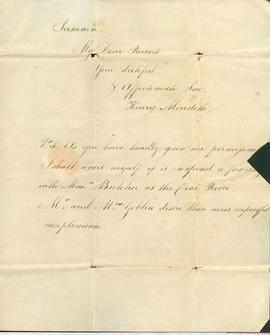 I remain,
My Dear Parent
Your dutiful
& Affectionate Son.
Henry Meredith
P.S. As you have kindly given me permission
I shall avail myself of it to spend a few days
with Mas.r Butcher at the Coal River
Mr. and Mrs. Giblin desire their most respectful
compliments.